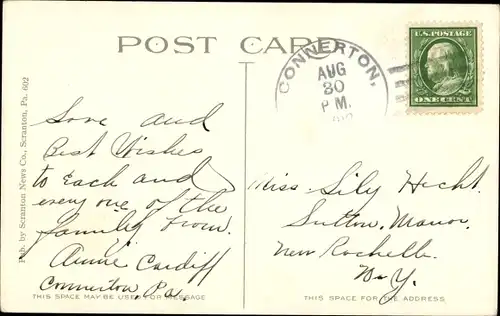 POST CARD
CONNERTON,
AUG
30
P.M.
U.S. POSTAGE
ONE CENT
Pub. by Scranton News Co., Scranton, Pa. 602
Love and
Best Wishes
to Each and
every one of the
family from.
Annie Cardiff
Connerton, Pa.
THIS SPACE MAY BE USED FOR MESSAGE
Miss Lily Hecht.
Sutton. Manor.
New Rochelle.
N-Y.
THIS SPACE FOR THE ADDRESS